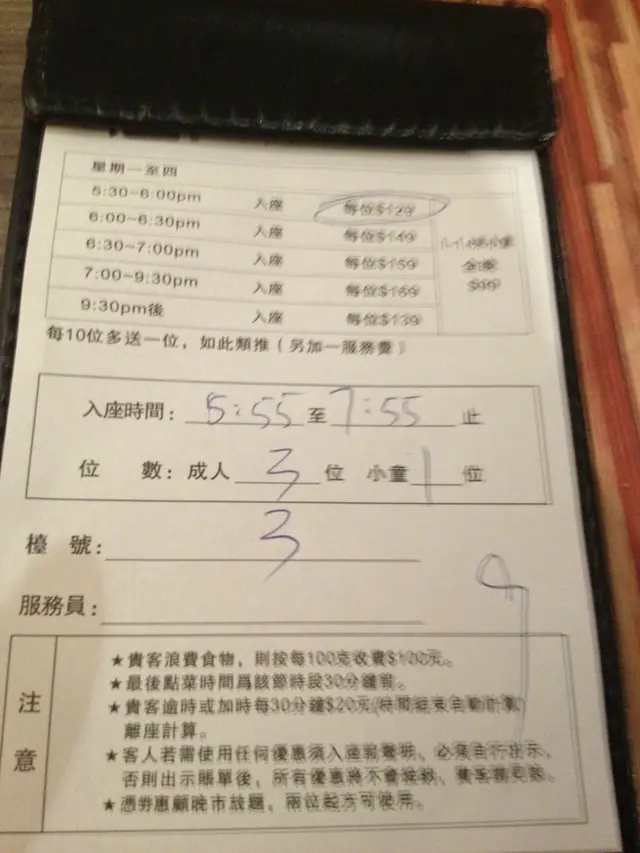 星期一至四
5:30-6:00pm 入座 每位$129
6:00~6:30pm 入座 每位$149
6:30~7:00pm 入座 每位$159
7:00~9:30pm 入座 每位$169
9:30pm後 入座 每位$139
小童
全晚
$99
每10位多送一位，如此類推（另加一服務費）
入座時間：5:55至7:55止
位 數：成人3位 小童1位
檯 號：3
服務員：
注意
★貴客浪費食物，則按每100克收費$100元。
★最後點菜時間爲該節時段30分鐘前。
★貴客逾時或加時每30分鐘$20元(時間結束自動計算)
離座計算。
★客人若需使用任何優惠須入座前聲明、必須自行出示、
否則出示賬單後，所有優惠將不會接納、貴客
★憑券惠顧晚市放題，兩位起方可使用。